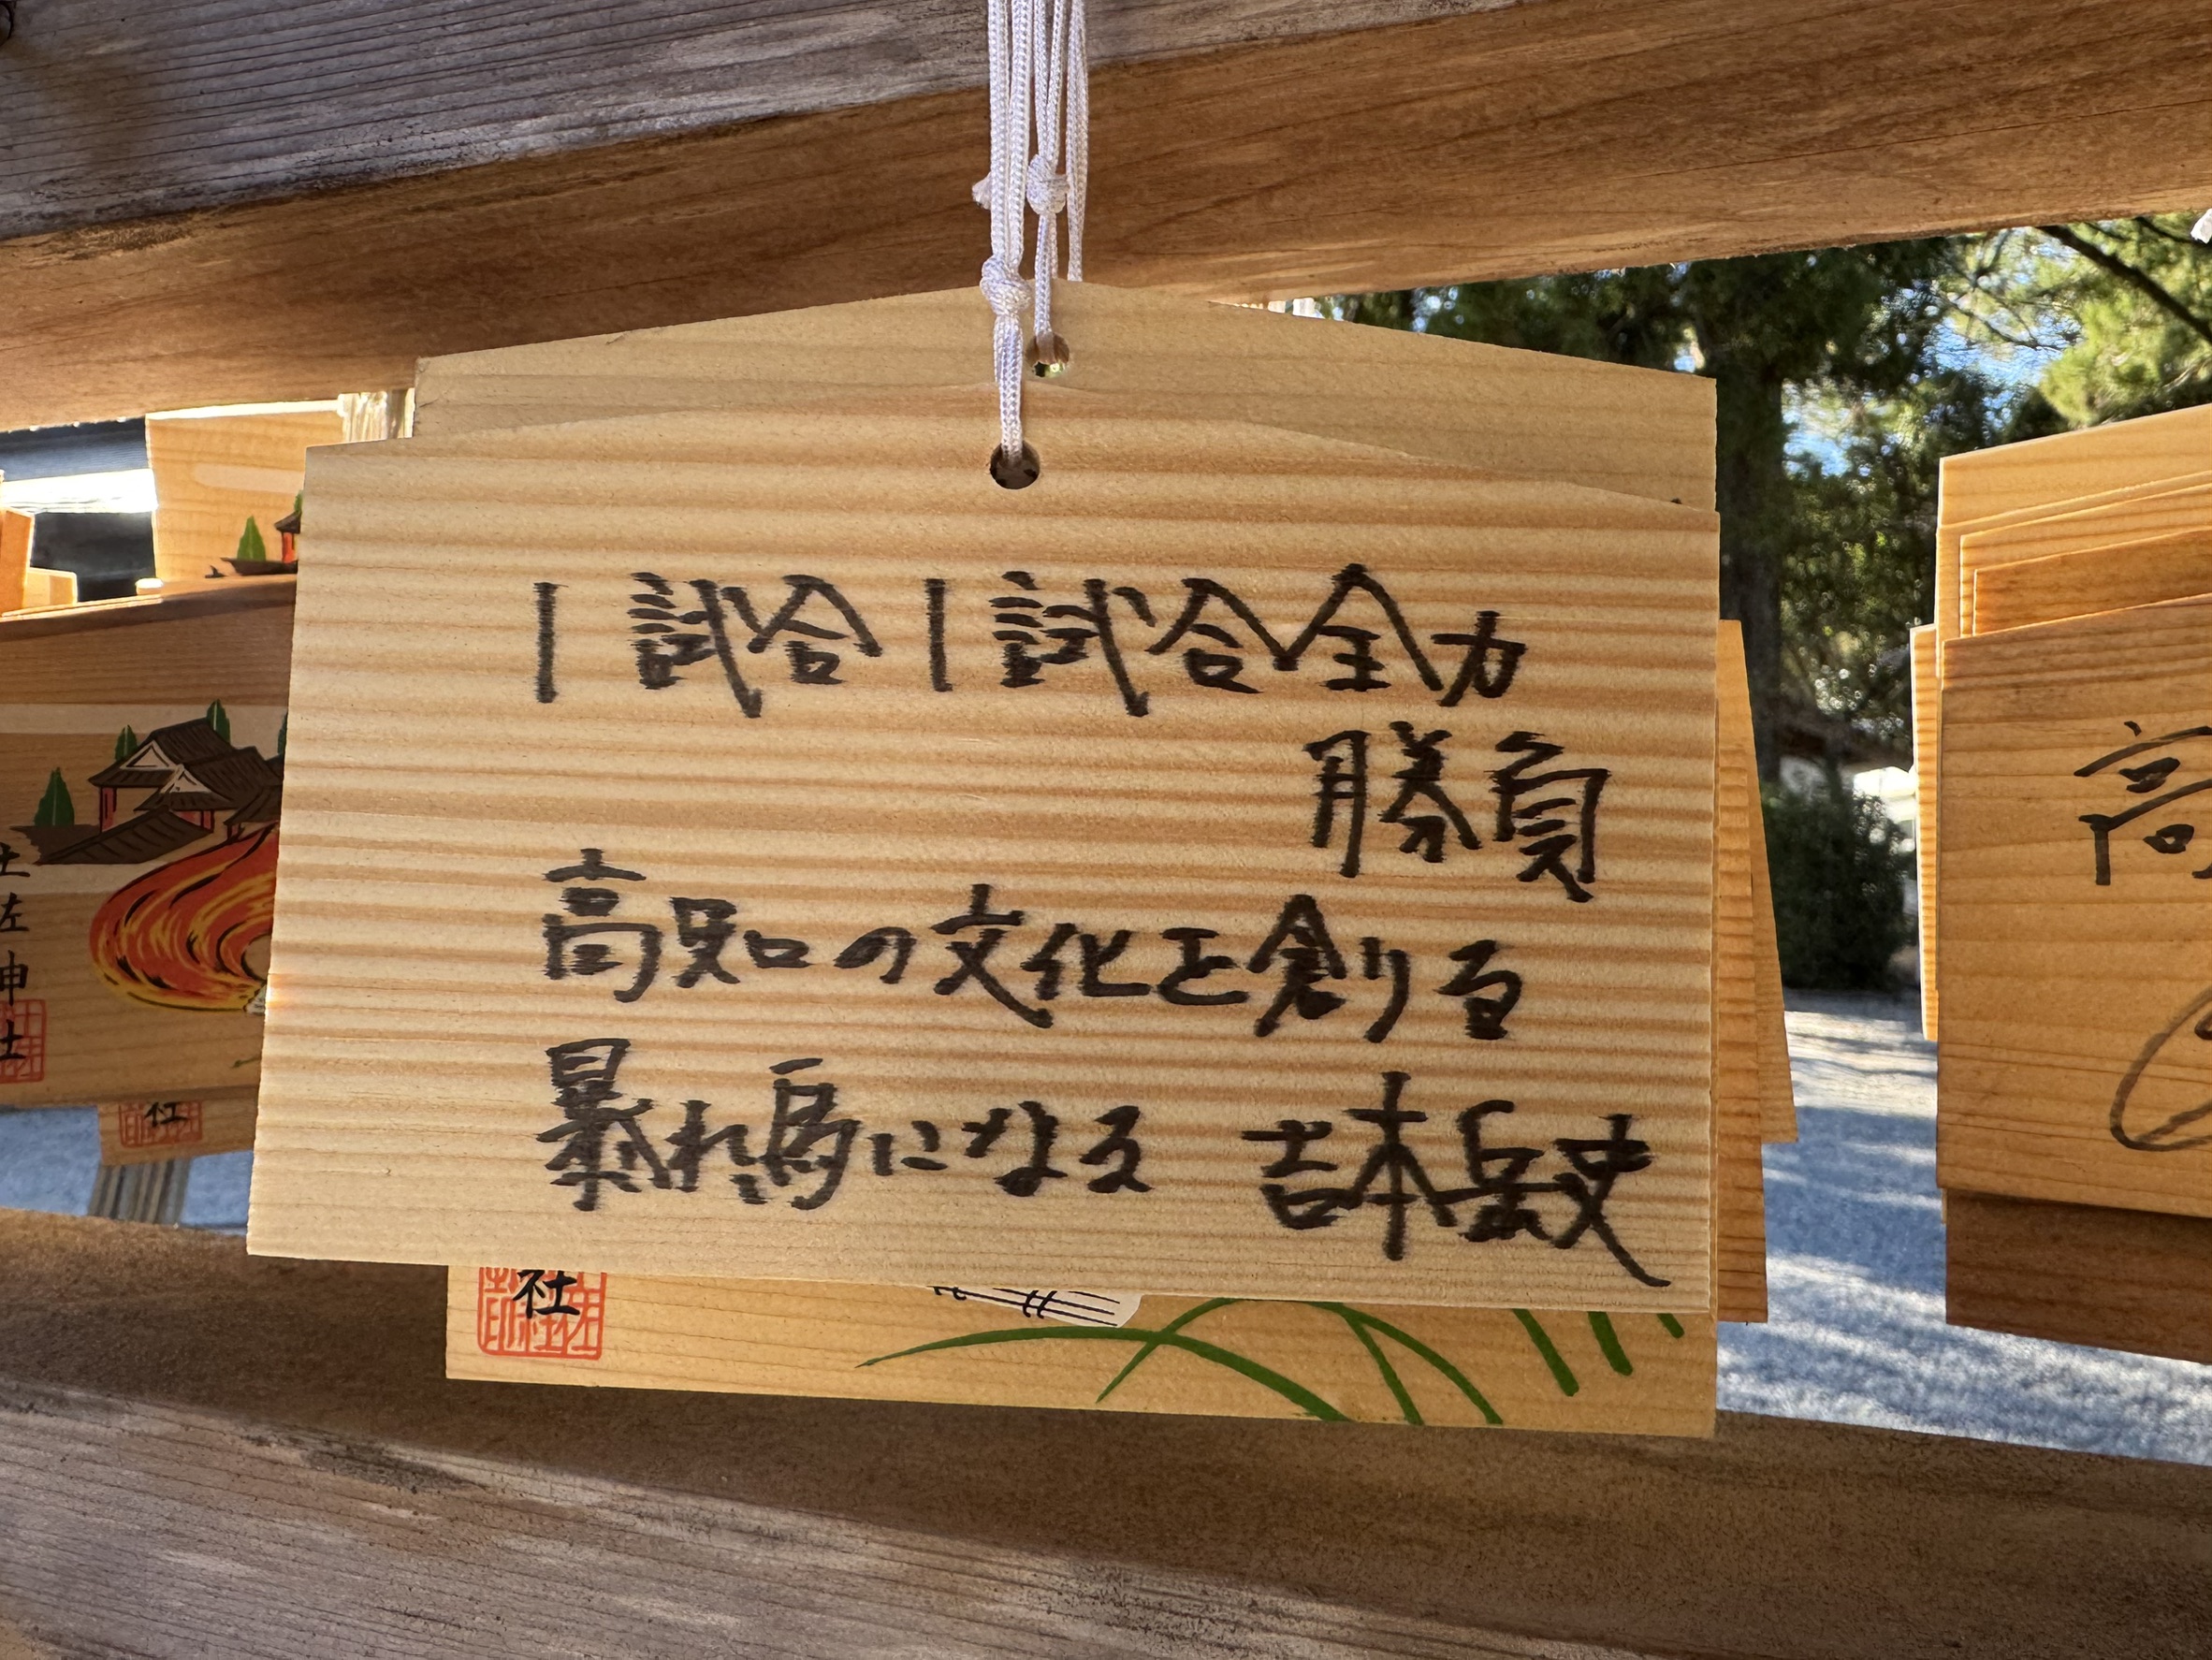 1試合1試合全力
勝負
高知の文化を創る
暴れ馬になる 吉本岳史
土佐神社
社
社
高